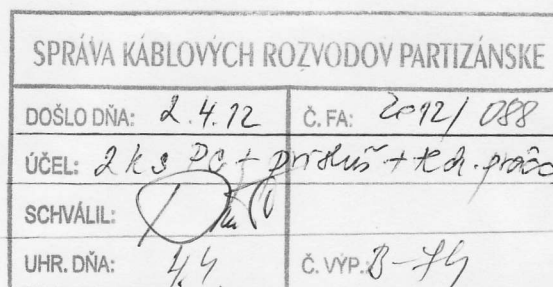 SPRÁVA KÁBLOVÝCH ROZVODOV PARTIZÁNSKE
DOŠLO DŇA: 2.4.12 Č. FA: 2012/088
ÚČEL: 2 ks PC + prísluš + tech. práce
SCHVÁLIL:
UHR. DŇA: 4.4. Č. VÝP.: B-74